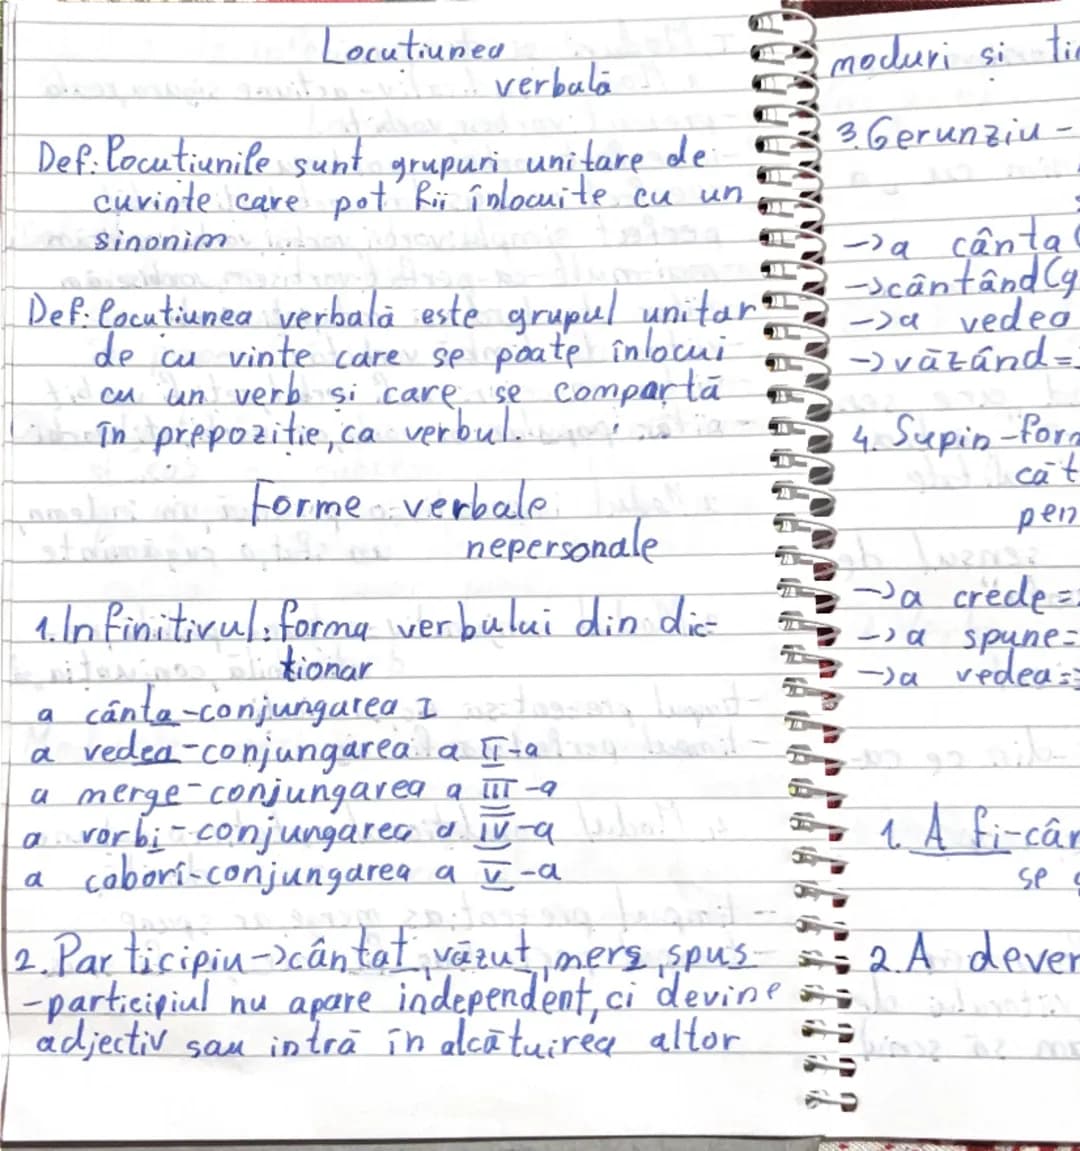 Locuțiunea
verbală
Def: Locuțiunile sunt grupuri unitare de
cuvinte care pot fii înlocuite cu un
sinonim
Def: Locuțiunea verbală este grupul unitar
de cu vinte care se poate înlocui
cu un verb și care se comportă
în prepoziție, ca verbul.
Forme verbale
nepersonale
1. Infinitivul: forma verbului din dic-
ționar
a cânta - conjungarea I
a vedea - conjungarea a II-a
a merge - conjungarea a III-a
a vorbi - conjungarea a IV-a
a coborî - conjungarea a V-a
2. Participiu -> cântat, văzut, mers, spus
- participiul nu apare independent, ci devine
adjectiv sau intră în alcătuirea altor
moduri si
3. Gerunziu -
-> a cânta
-> cântând
-> a vedea
-> văzând =
4. Supin -
-> a crede =
-> a spune =
-> a vedea =
1. A fi -
se
2. A